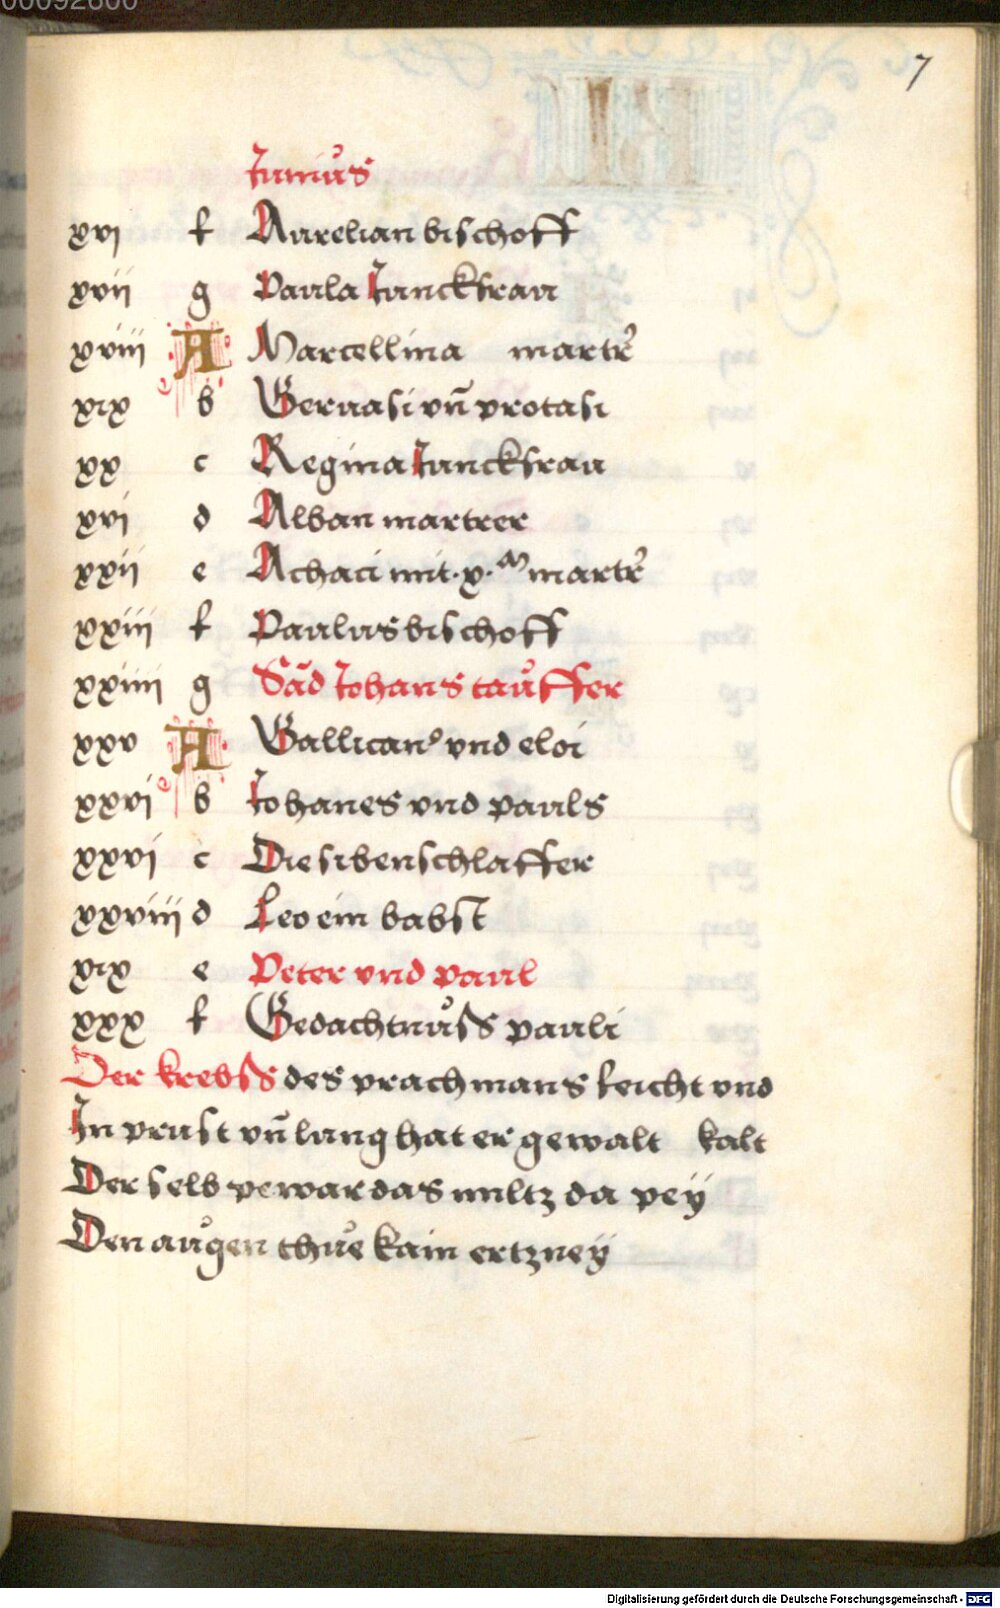 00092600
7
Junius
xvi f Aurelian bischoff
xvii g Paula Junckfrau
xviii A Marcellina martr̄
xıx b Geruasi vn̄ protasi
xx c Regina Junckfrau
xvi d Alban martrer
xxii e Achaci mit · x · m martr̄
xxiii f Paulus bischoff
xxiiii g Sād Johans taůffer
xxv A Gallicanꝰ vnd eloi
xxvi b Johanes vnd pauls
xxvi c Die sibenschlaffer
xxviii d Leo ein babst
xıx e Peter vnd paul
xxx f Gedachtnůss pauli
Der krebss des prachmans feicht vnd
In prust vn̄ lung hat er gewalt kalt
Der selb pewar das miltz da pey
Den aůgen thůe kain ertzney
Digitalisierung gefördert durch die Deutsche Forschungsgemeinschaft - DFG